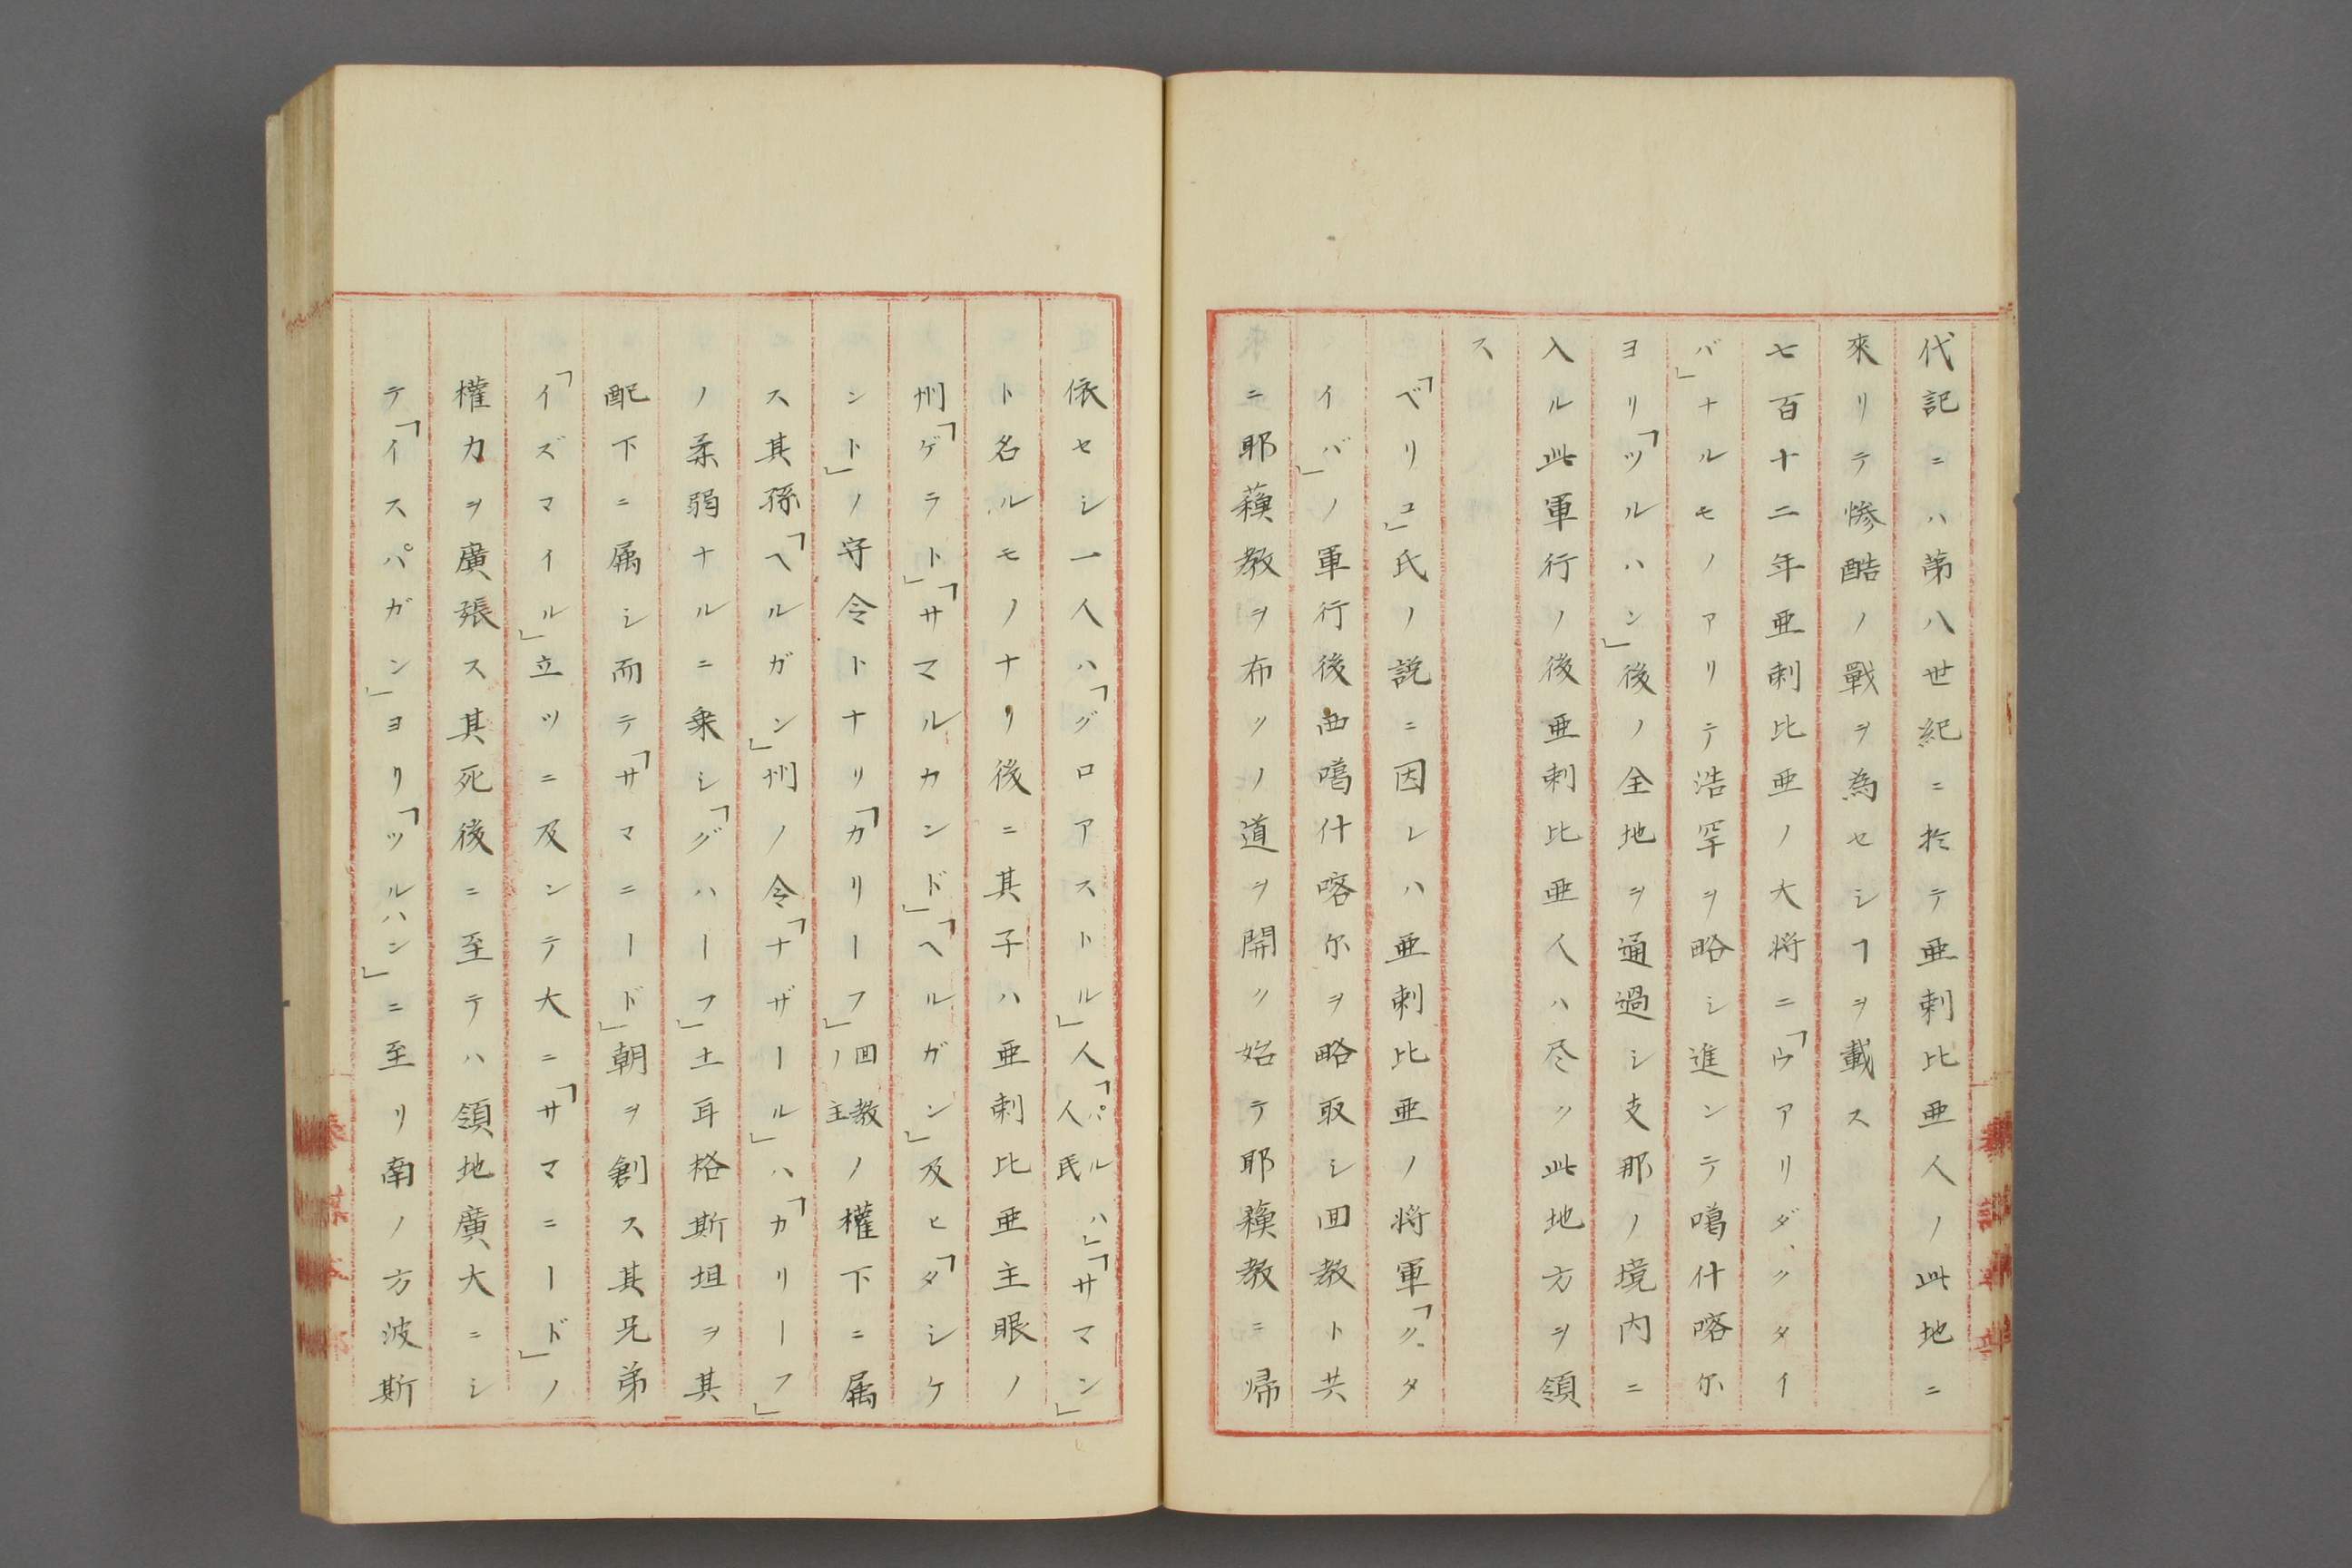 代記ニハ第八世紀ニ於テ亜剌比亜人ノ此地ニ
來リテ惨酷ノ戰ヲ為セシヿヲ載ス
七百十二年亜剌比亜ノ大将ニ「ウアリダ、クタイ
バ」ナルモノアリテ浩罕ヲ略シ進ンテ噶什喀尔
ヨリ「ツルハン」後ノ全地ヲ通過シ支那ノ境内ニ
入ル此軍行ノ後亜剌比亜人ハ尽ク此地方ヲ領
ス
「ベリユ」氏ノ説ニ因レハ亜剌比亜ノ将軍「ク、タ
イバ」ノ軍行後西噶什喀尔ヲ略取シ回教ト共
ニ耶蘓教ヲ布クノ道ヲ開ク始テ耶蘓教ニ帰
依セシ一人ハ「グロアストル」人「パルハ」人民「サマン」
ト名ルモノナリ後ニ其子ハ亜剌比亜主眼ノ
州「ゲラト」「サマルカンド」「ヘルガン」及ヒ「タシケ
ント」ノ守令トナリ「カリーフ」回教ノ主ノ權下ニ属
ス其孫「ヘルガン」州ノ令「ナザール」ハ「カリーフ」
ノ柔弱ナルニ乗シ「グハーフ」土耳格斯坦ヲ其
配下ニ属シ而テ「サマニード」朝ヲ創ス其兄弟
「イズマイル」立ツニ及ンテ大ニ「サマニード」ノ
權力ヲ廣張ス其死後ニ至テハ領地廣大ニシ
テ「イスパガン」ヨリ「ツルハン」ニ至リ南ノ方波斯